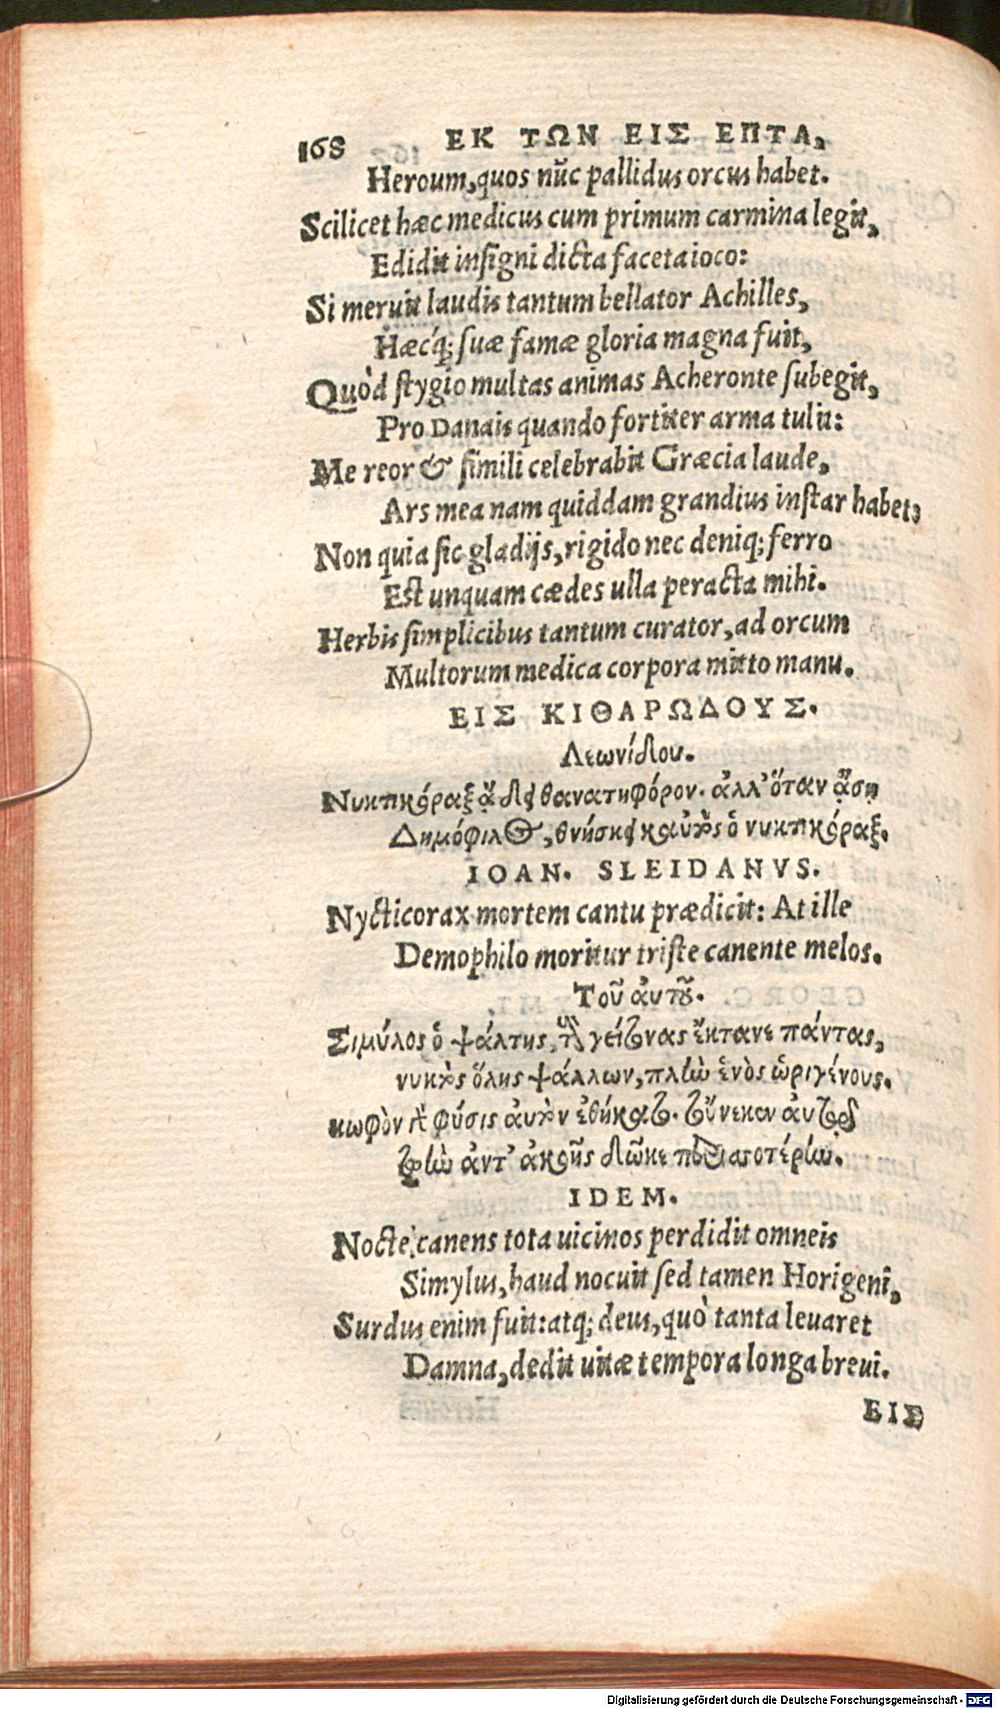 168 ΕΚ ΤΩΝ ΕΙΣ ΕΠΤΑ,
Heroum, quos nūc pallidus orcus habet.
Scilicet hæc medicus cum primum carmina legit,
Edidit insigni dicta faceta ioco:
Si meruit laudis tantum bellator Achilles,
Hæcq́; suæ famæ gloria magna fuit,
Quòd stygio multas animas Acheronte subegit,
Pro Danais quando fortiter arma tulit:
Me reor & simili celebrabit Græcia laude,
Ars mea nam quiddam grandius instar habet:
Non quia sic gladijs, rigido nec deniq; ferro
Est unquam cædes ulla peracta mihi.
Herbis simplicibus tantum curator, ad orcum
Multorum medica corpora mitto manu.
ΕΙΣ ΚΙΘΑΡΩΔΟΥΣ.
Λεωνίδου.
Νυκτικόραξ ᾄδει θανατηφόρον. ἀλλ' ὅταν ᾄσῃ
Δημόφιλος, θνήσκει καὐτὸς ὁ νυκτικόραξ.
IOAN. SLEIDANVS.
Nycticorax mortem cantu prædicit: At ille
Demophilo moritur triste canente melos.
Τοῦ αὐτοῦ.
Σιμύλος ὁ ψάλτης, τοὺς γείτονας ἔκτανε πάντας,
νυκτὸς ὅλης ψάλλων, πλὴν ἑνὸς ὠριγένους.
κωφὸν γὰρ φύσις αὐτὸν ἐθήκατο. τοὔνεκεν αὐτῷ
ζωὴν ἀντ' ἀκοῆς δῶκε περισσοτέρην.
IDEM.
Nocte canens tota uicinos perdidit omneis
Simylus, haud nocuit sed tamen Horigeni,
Surdus enim fuit: atq; deus, quò tanta leuaret
Damna, dedit uitæ tempora longa breui.
ΕΙΣ
Digitalisierung gefördert durch die Deutsche Forschungsgemeinschaft - DFG